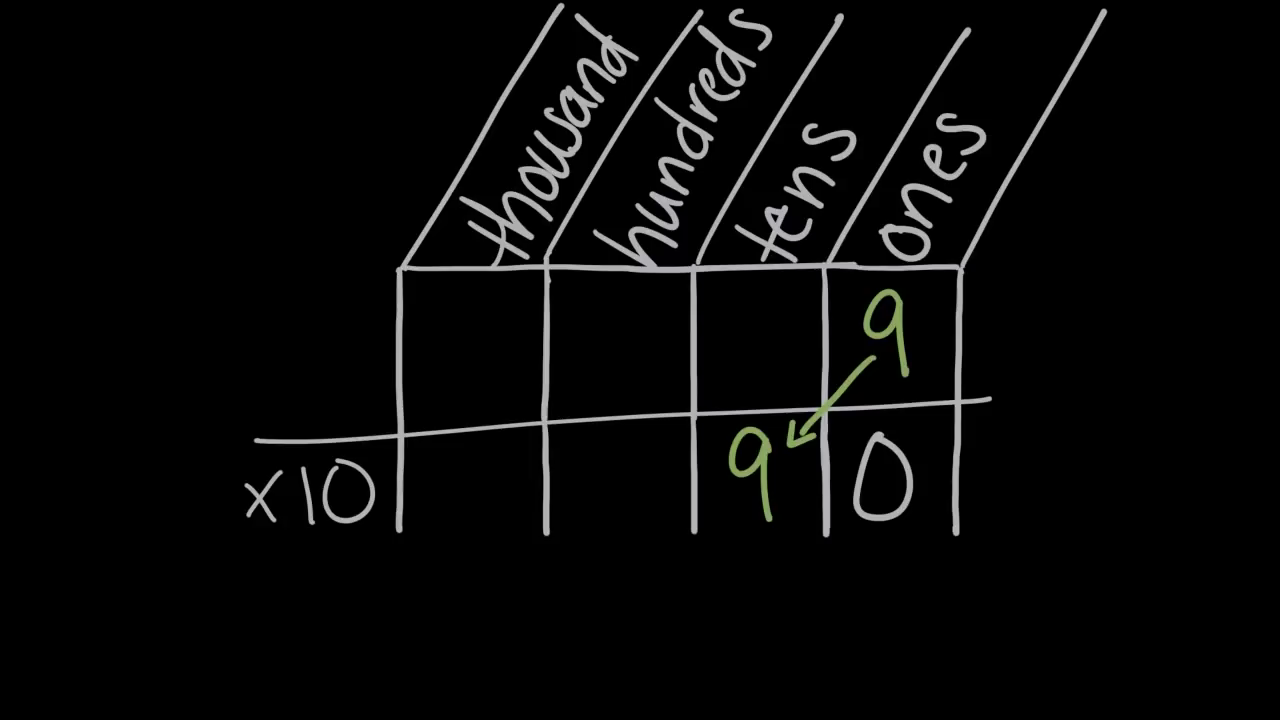 thousand hundreds tens ones
9
x10 9 0